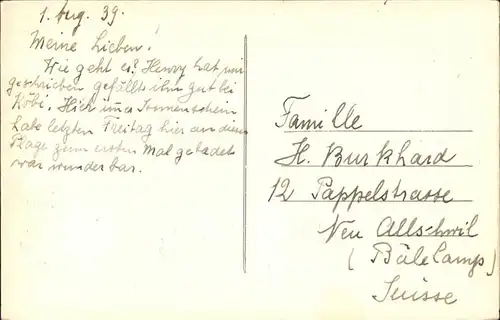 1. Aug. 39.
Meine Lieben!
Wie geht es? Henry hat mir
geschrieben gefällts ihm gut bei
Köbi. Hier immer Sonnenschein
habe letzten Freitag hier an dieser
Plage zum ersten Mal gebadet
war wunderbar.
Famille
H. Burkhard
12 Pappelstrasse
Neu Allschwil
(Bâle Camp)
Suisse